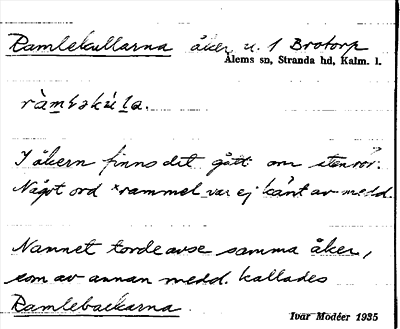 Ramlekullarna åker u. 1 Brotorp
Ålems sn, Stranda hd, Kalm. l.
I åkern finns det gått om stenrör.
Något ord *rammel var ej känt av medd.
Namnet torde avse samma åker,
som av annan medd. kallades
Ramlebackarna
Ivar Modéer 1935